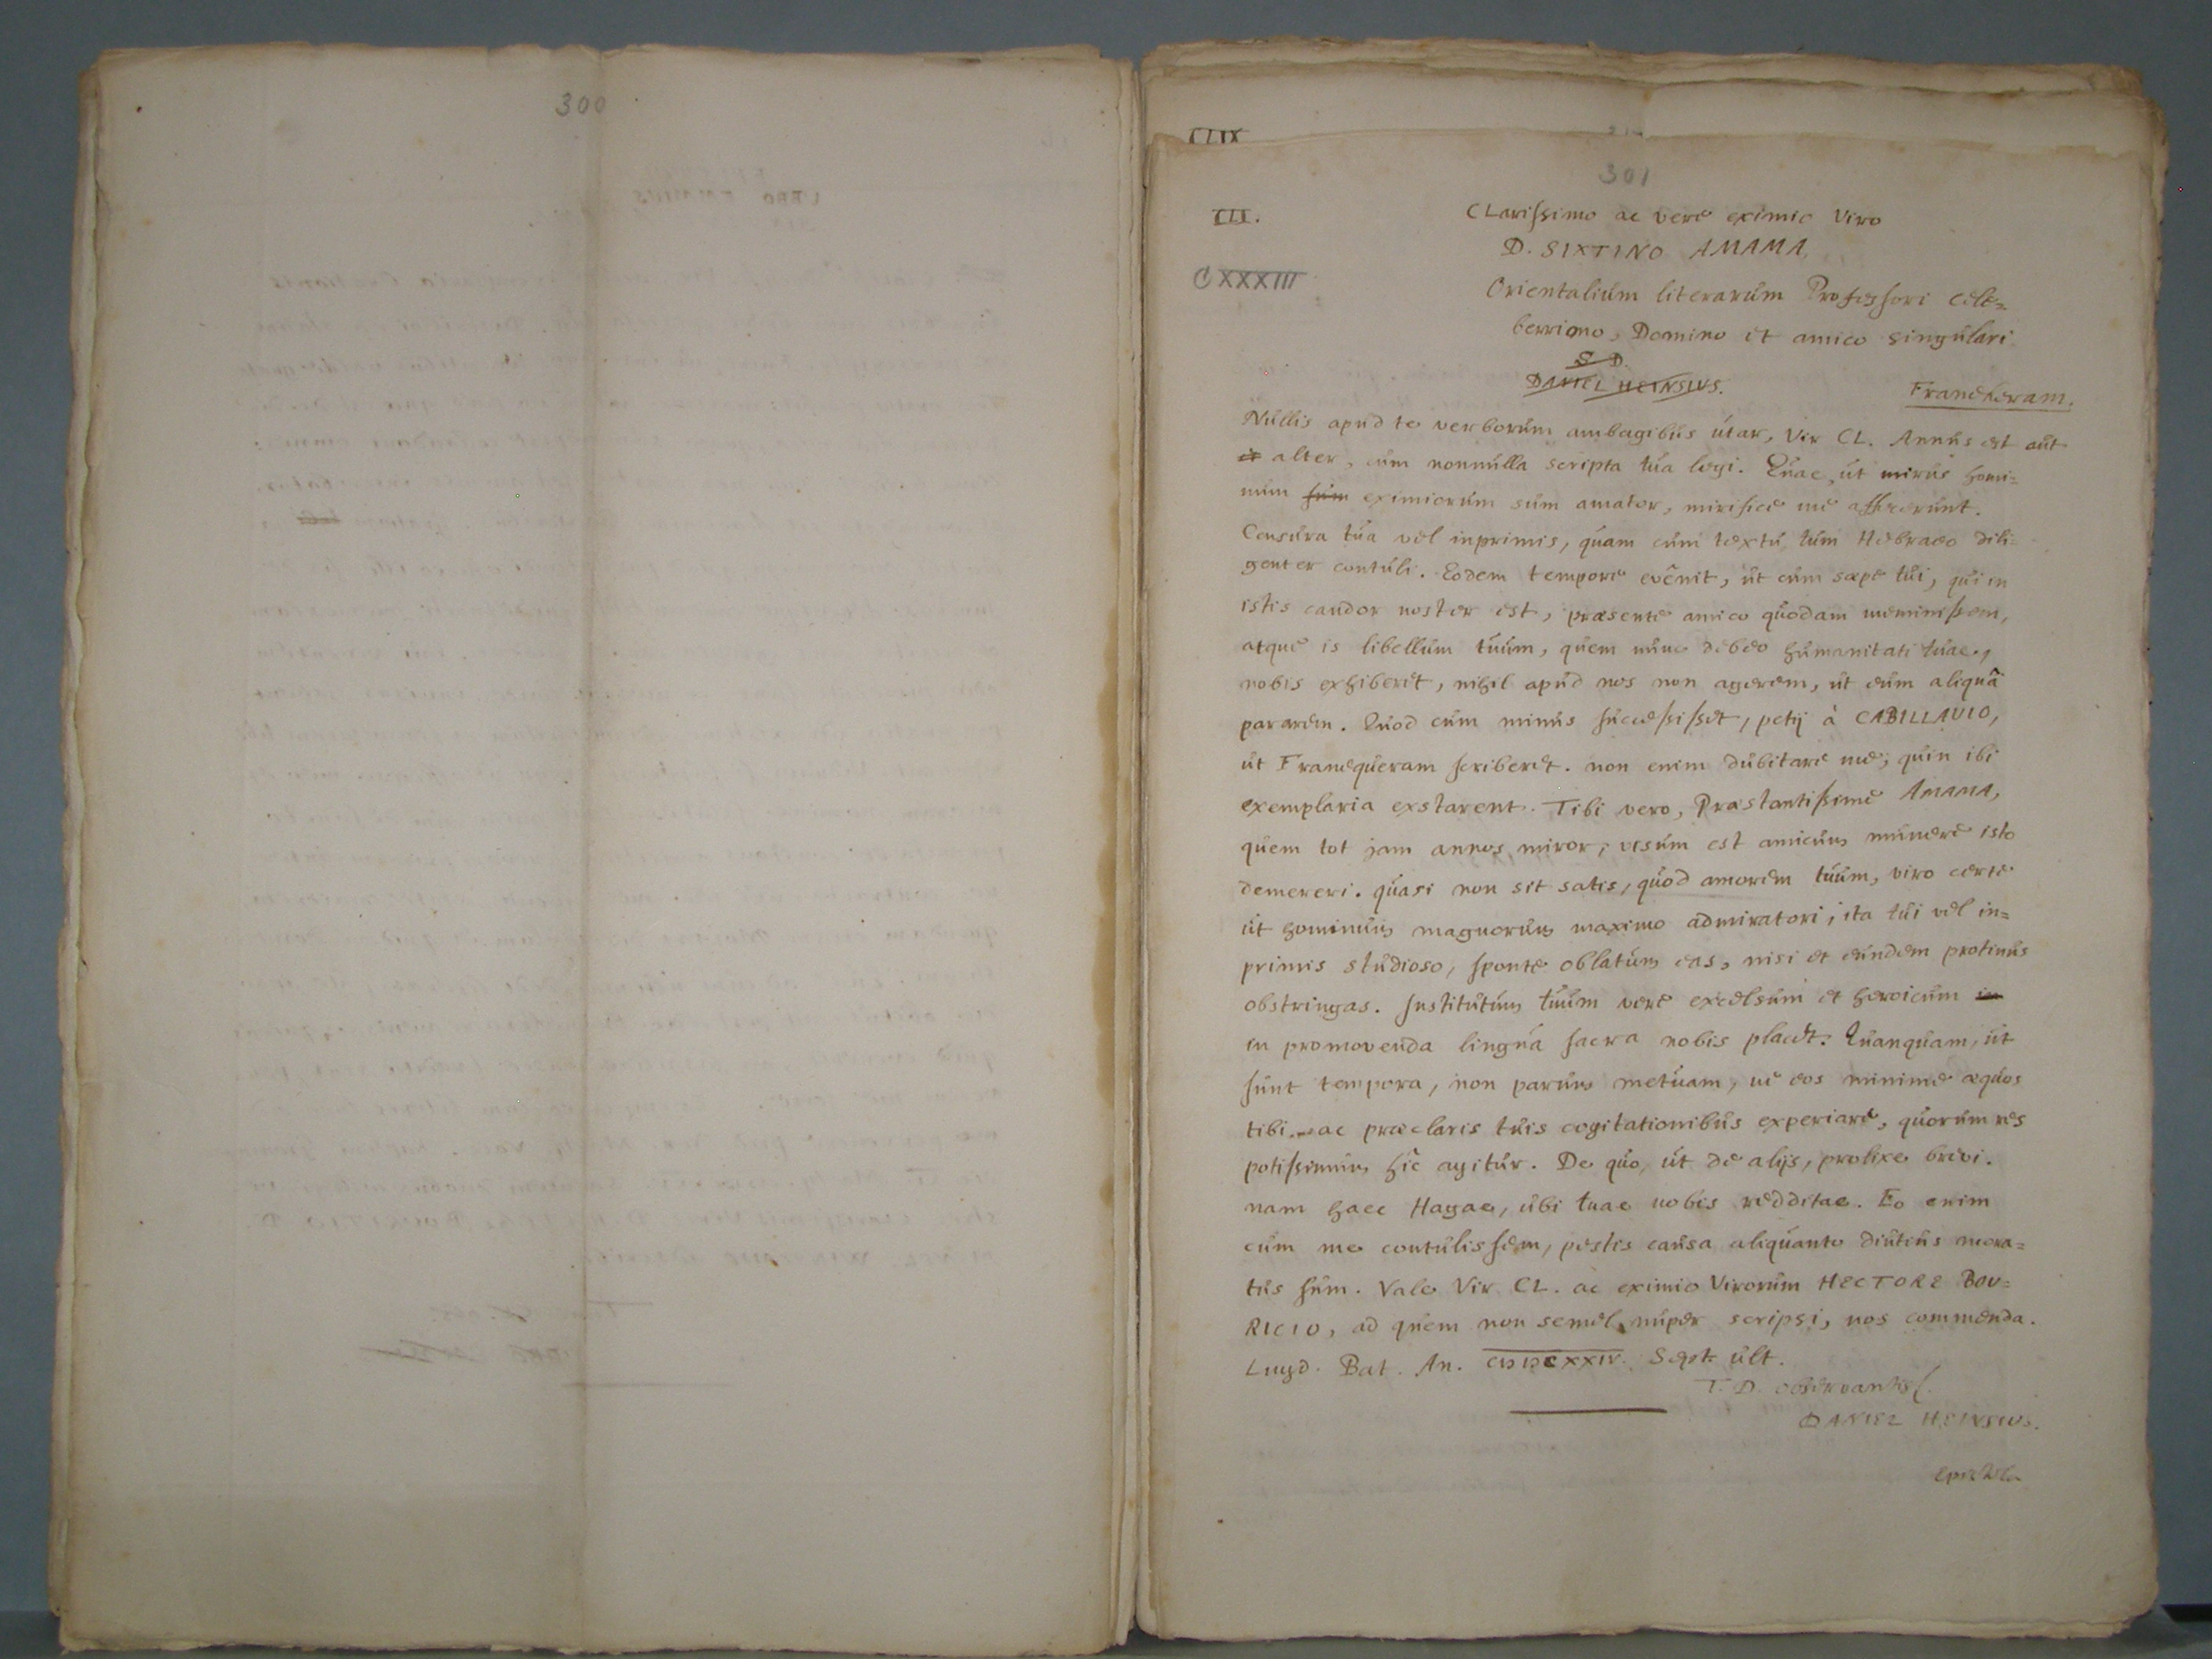 300
CLIX
301
III.
Clarissimo ac vere eximio Viro
D. SIXTINO AMAMA,
CXXXIII
Orientalium literarum Professori cele=
berrimo, Domino et amico singulari
S D.
DANIEL HEINSIUS.
Franekeram.
Nullis apud te verborum ambagibus utar, Vir CL. Annus est aut
et alter, cum nonnulla scripta tua legi. Quae, ut mirus homi=
num sum eximiorum sum amator, mirifice me affecerunt.
Censura tua vel inprimis, quam cum textu tum Hebraeo dili=
genter contuli. Eodem tempore evênit, ut cum saepe tui, qui in
istis candor noster est, praesente amico quodam meminissem,
atque is libellum tuum, quem nunc debeo humanitati tuae,
nobis exhiberet, nihil apud nos non agerem, ut eum aliquâ
pararem. Quod cum minus successisset, petij à CABILLAVIO,
ut Franequeram scriberet. non enim dubitare me, quin ibi
exemplaria exstarent. Tibi vero, Praestantissime AMAMA,
quem tot jam annos miror, visum est amicum munere isto
demereri. quasi non sit satis, quod amorem tuum, viro certe
ut hominum magnorum maximo admiratori, ita tui vel in=
primis studioso, sponte oblatum eas, nisi et eundem protinus
obstringas. Institutum tuum vere excelsum et heroicum in
in promovenda linguá sacra nobis placet. Quanquam, ut
sunt tempora, non parum metuam, ne eos minime aequos
tibi ac praeclaris tuis cogitationibus experiare, quorum res
potissimum hîc agitur. De quo, ut de alijs, prolixe brevi.
nam haec Hagae, ubi tuae nobis redditae. Eo enim
cum me contulissem, pestis causa aliquanto diutius mora=
tus sum. Vale Vir CL. ac eximio Virorum HECTORE BOU=
RICIO, ad quem non semel nuper scripsi, nos commenda.
Lugd. Bat. An. CIƆIƆCXXIV. Sept. ult.
T. D. observantiss.
DANIEL HEINSIUS.
Epistola